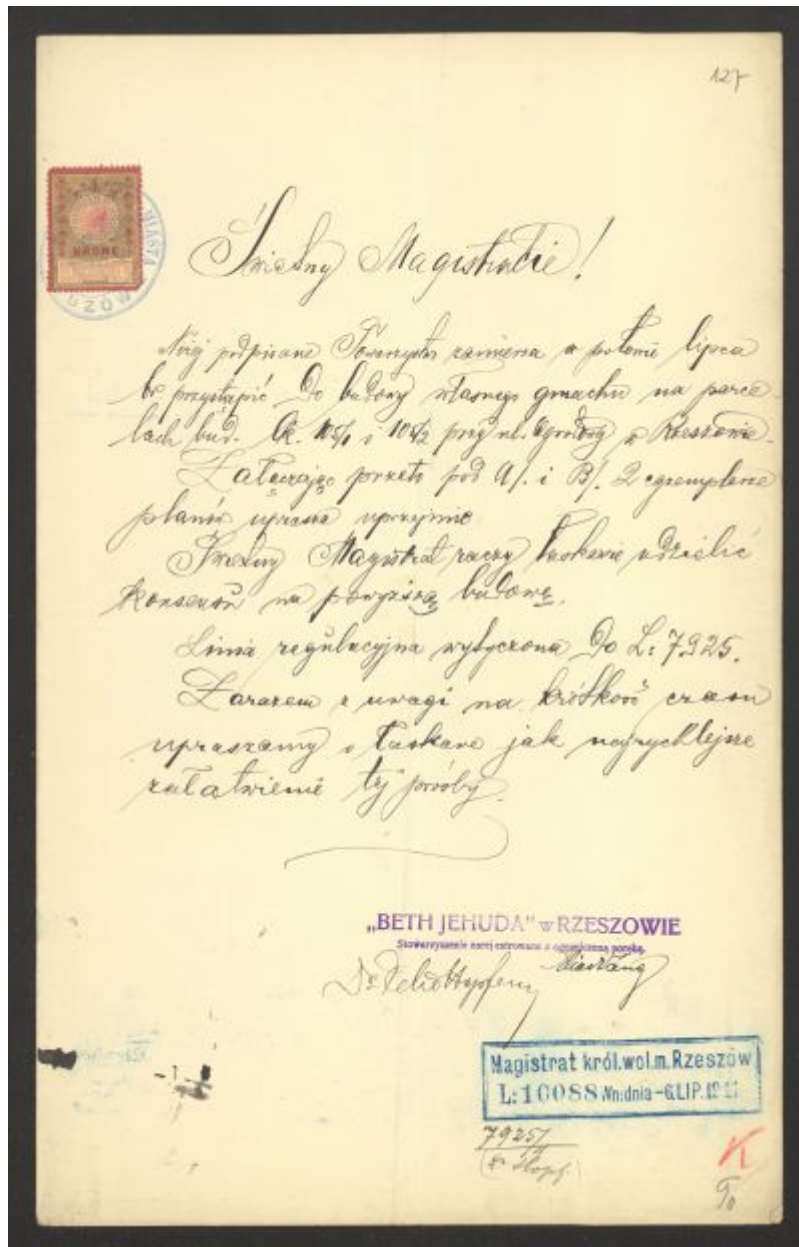 127
KRONE
MIASTA
Świetny Magistracie!
Niżej podpisane Towarzystwo zamierza w połowie lipca
br. przystąpić do budowy własnego gmachu na parce-
lach bud. lk. 105/1 i 105/2 przy ul. Ogrodowej w Rzeszowie.
Załączając przeto pod A/. i B/. 2 egzemplarze
planów uprasza uprzejmie
Świetny Magistrat raczy łaskawie udzielić
konsensu na powyższą budowę.
Linia regulacyjna wytyczona do L: 7925.
Zarazem z uwagi na krótkość czasu
upraszamy o łaskawe jak najrychlejsze
załatwienie tej prośby.
„BETH JEHUDA" w RZESZOWIE
Stowarzyszenie zarej. z ograniczoną poręką.
Magistrat król.wol.m.Rzeszów
L:10088 Wn:dnia -6.LIP.1911
7925/11
K